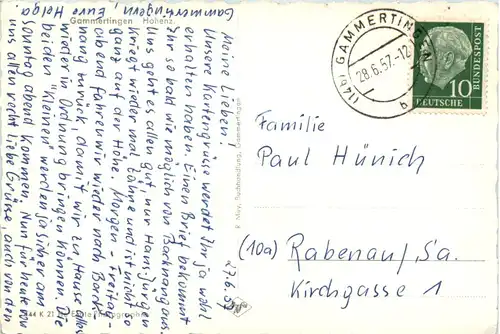 Gammertingen Hohenz.
27.6.57
Meine Lieben!
Unsere Kartengrüsse werdet Ihr ja wohl
erhalten haben. Einen Brief bekommt
Ihr so bald wie möglich von Backnang aus.
Uns geht es allen gut, nur Hans-Jürgen
kriegt wieder mal Zähne und ist nicht so
ganz auf der Höhe. Morgen - Freitag -
abend fahren wir wieder nach Back-
nang zurück, damit wir zu Hause alles
wieder in Ordnung bringen können. Die
beiden "Kleinen" werden ja sicher am
Sonntag abend kommen. Nun für heute von
uns allen recht liebe Grüsse, auch von den
Gammertingern, Eure Helga
44 K 21 Echte Photographie
R. Mayr, Buchhandlung, Gammertingen
(14b) GAMMERTINGEN
28.6.57.-12
b
DEUTSCHE
BUNDESPOST
10
Familie
Paul Hünich
(10a) Rabenau/Sa.
Kirchgasse 1